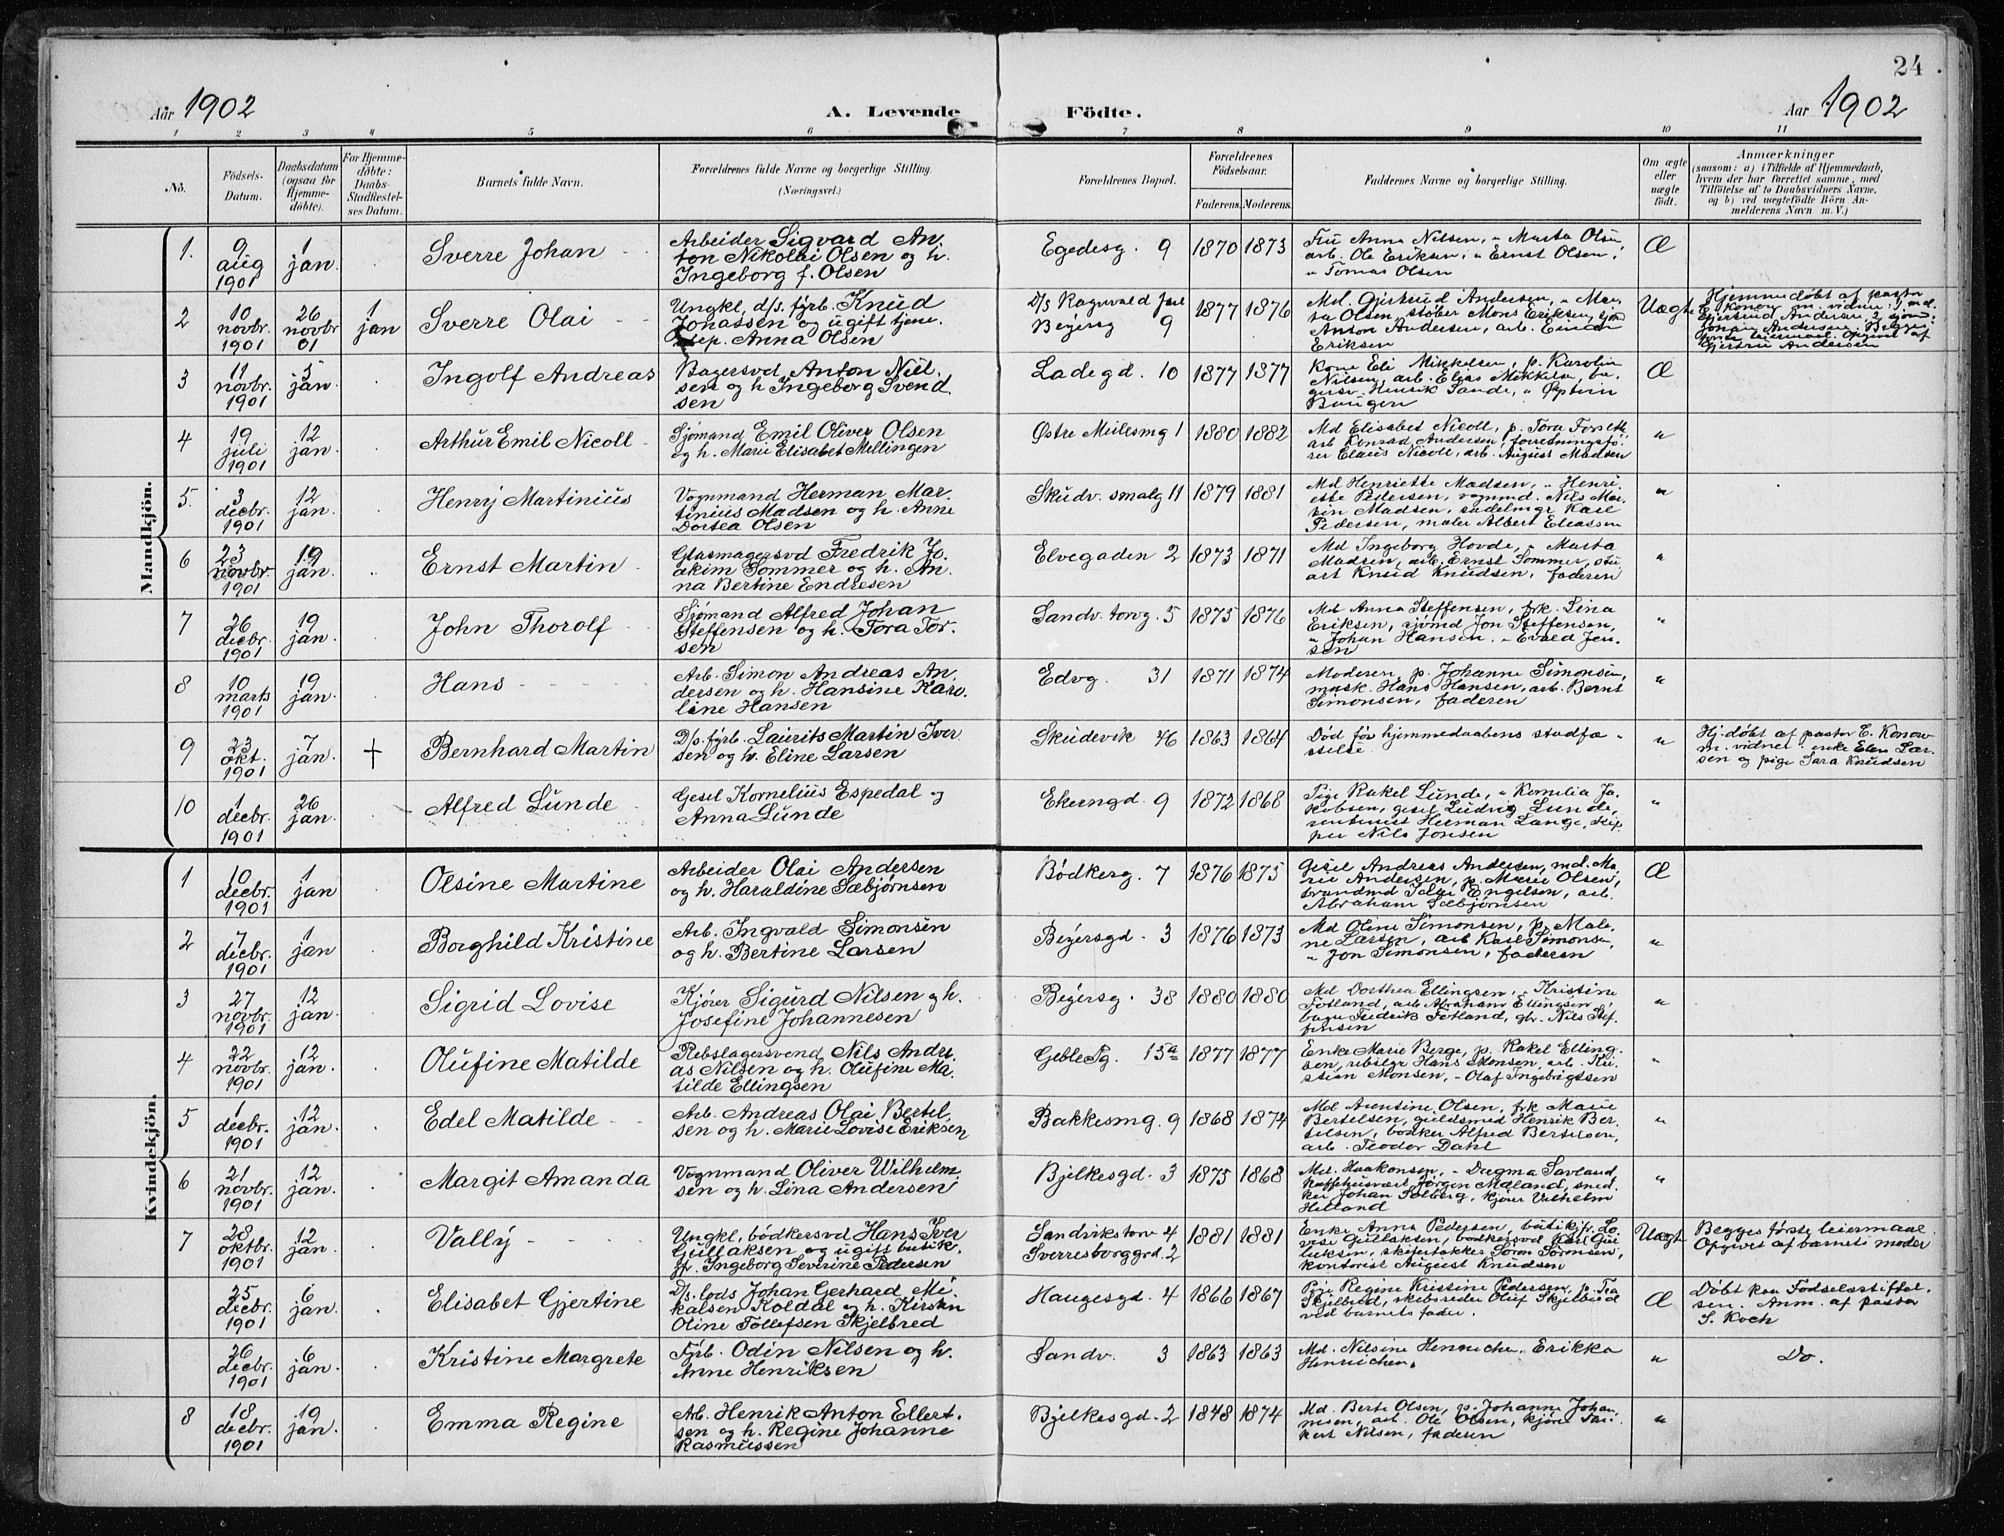 24
Aar 1902 A. Levende Födte. Aar 1902
1 2 3 4 5 6 7 8 9 10 11
No.
Födsels-
Datum.
Daabsdatum
(ogsaa for
Hjemme-
döbte).
For Hjemme-
döbte:
Daabs-
Stadfæstel-
ses Datum.
Barnets fulde Navn.
Forældrenes fulde Navne og borgerlige Stilling.
(Næringsvei.)
Forældrenes Bopæl.
Forældrenes
Födselsaar.
Faderens. Moderens.
Faddernes Navne og borgerlige Stilling.
Om ægte
eller
uægte
født.
Anmærkninger
(saasom: a) i Tilfælde af Hjemmedaab,
hvem der har forrettet samme, med
Tilföielse af to Daabsvidners Navne,
og b) ved uægtefödte Börn An-
melderens Navn m. V.)
Mandkjön.
1. 9 aug 1901 1 jan. Sverre Johan
Arbeider Sigvard An-
ton Nikolai Olsen og h.
Ingeborg f. Olsen
Egedesg. 9 1870 1873
Fru Anna Nilsen, " Marta Olsen,
arb. Ole Eriksen, " Ernst Olsen,
" Tomas Olsen
Æ
2 10 novbr. 1901 26 novbr 01 1 jan Sverre Olai
Ungkl, d/s. fyrb. Knud
Jonassen og ugift tjene-
step. Anna Olsen
D/s Ragnvald Jarl
Beyersg 9 1877 1876
Md. Gjertrud Andersen, " Mar-
ta Olsen, støber Mons Eriksen, sjøm
Anton Andersen, arb. Einar
Eriksen
Uægte
Hjemmedøbt af pastor
E. Konow m. vidner: 1, md.
Gjertrud Andersen, 2, sjøm.
Andersen. Begges
første leiermaal. Opgivet af
Gjertru Andersen
3 11 novbr. 1901 5 jan. Ingolf Andreas
Bagersvd Anton Niel-
sen og h. Ingeborg Svend-
sen
Ladegd. 10 1877 1877
Kone Eli Mikkelsen, p. Karolin
Nilsen, arb. Elias Mikkelsen, ba-
gersv. Henrik Sande, " Øystein
Baugen
Æ
4 19 juli 1901 12 jan. Arthur Emil Nicoll
Sjømand Emil Oliver Olsen
og h. Marie Elisabet Mellingen
Østre Mulesmg 1 1880 1882
Md Elisabet Nicoll, p. Tora Forseth
arb Konrad Andersen, forretningsfø-
rer Claus Nicoll, arb. August Madsen
"
5. 3 decbr. 1901 12 jan. Henry Martinius
Vognmand Herman Mar-
tinius Madsen og h. Anne
Dortea Olsen
Skudv. smalg 11 1879 1881
Md Henriette Madsen, " Henri-
ette Pedersen, vognmd. Nils Mar-
tin Madsen, sadelmgr Karl
Pedersen, maler Albert Eliassen
"
6 23 novbr. 1901 19 jan. Ernst Martin
Glasmagersvd Fredrik Jo-
akim Sommer og h. An-
na Bertine Endresen
Elvegaden 2 1873 1871
Md Ingeborg Hovde, " Marta
Madsen, arb. Ernst Sommer, stu
art Knud Knudsen, faderen
"
7 26 decbr. 1901 19 jan. John Thorolf
Sjømand Alfred Johan
Steffensen og h. Tora Tor-
sen
Sandv. torvg. 5 1875 1876
Md Anna Steffensen, frk. Lina
Eriksen, sjømd Jon Steffensen,
" Johan Hansen, " Evald Jen-
sen
"
8 10 marts 1901 19 jan. Hans
Arb. Simon Andreas An-
dersen og h. Hansine Karo-
line Hansen
Edvg. 31 1871 1874
Moderen, p. Johanne Simonsen,
mask. Hans Hansen, arb. Bernt
Simonsen, faderen
"
9 23 okt. 1901 7 jan. † Bernhard Martin
D/s. fyrb. Laurits Martin Iver
sen og h. Eline Larsen
Skudevik 46 1863 1864
Død før hjemmedaabens stadfæ-
stelse
"
Hj. døbt af pastor E. Konow
m. vidner: enke Elen Lar-
sen og pige Sara Knudsen
10 1 decbr. 1901 26 jan. Alfred Lunde
Gesel Kornelius Espedal og
Anna Lunde
Ekerngd. 9 1872 1868
Pige Rakel Lunde, " Kornelia Ja-
kobsen, gesel Ludvig Lunde,
rentenist Herman Lange, skip-
per Nils Jonsen
"
Kvindekjön.
1 10 decbr. 1901 1 jan Olsine Martine
Arbeider Olai Andersen
og h. Haraldine Sæbjørnsen
Bødkerg. 7 1876 1875
Gesel Andreas Andersen, md. Ma-
rie Andersen, p. Marie Olsen,
brandmd Engelsen, arb.
Abraham Sæbjørnsen
Æ
2 7 decbr. 1901 1 jan Borghild Kristine
Arb. Ingvald Simonsen
og h. Bertine Larsen
Beyersgd. 3 1876 1873
Md Oline Simonsen, p. Male-
ne Larsen, arb Karl Simonsen,
" Jon Simonsen, faderen
"
3 27 novbr. 1901 12 jan. Sigrid Lovise
Kjører Sigurd Nilsen og h.
Josefine Johannesen
Beyersg. 38 1880 1880
Md Dorthea Ellingsen, " Kristine
Fotland, arb Abraham Ellingsen,
bager Fredrik Fotland, gbr. Nils Stef-
fensen
"
4 22 novbr. 1901 12 jan. Olufine Matilde
Rebslagersvend Nils Andre-
as Nilsen og h. Olufine Ma-
tilde Ellingsen
Geble Pg. 15a 1877 1877
Enke Marie Berge, p. Rakel Elling-
sen, rebslgr Hans Monsen, arb. Kri-
stian Monsen, " Olaf Ingebrigtsen
"
5 1 decbr. 1901 12 jan. Edel Matilde
Arb. Andreas Olai Bertel-
sen og h. Marie Lovise Eriksen
Bakkesmg. 9 1868 1874
Md Arentine Olsen, frk Marie
Bertelsen, guldsmed Henrik Ber-
telsen, bødker Alfred Bertelsen,
arb. Teodor Dahl
"
6 21 novbr. 1901 12 jan. Margit Amanda
Vognmand Oliver Wilhelm-
sen og h. Lina Andersen
Bjelkesgd. 3 1875 1868
Md. Haakonsen, " Dagma Savland,
kaffehusvært Jørgen Mæland, smed-
ker Johan Solberg, kjører Vilhelm
Helland
"
7 28 oktbr. 1901 12 jan. Vally
Ungkl, bødkersvd Hans Iver
Gullaksen og ugift butik-
fr. Ingeborg Severine Pedersen
Sandvikstorv 4
Sverresborggrd. 2 1881 1881
Enke Anna Pedersen, butikfr. Lo-
vise Gullaksen, bødkersvd Karl Gul-
laksen, skifertækker Søren Sørensen,
kontorist August Knudsen
Uægt
Begges første leiermaal
Opgivet af barnets moder
25 decbr. 1901 6 jan. Elisabet Gjertine
D/s. lods Johan Gerhard Mi-
kalsen Koldal og h. Kirsten
Oline Tollefsen Skjelbred
Haugesgd. 4 1866 1867
Pige Regine Kristine Pedersen, p. Tea
Skjelbred, skibsreder Oluf Skjelbred
ved barnets fader.
Æ
Døbt paa Fødselsstiftel-
sen. Anm. af pastor
S. Koch
26 decbr. 1901 6 jan. Kristine Margrete
Fyrb. Odin Nilsen og h.
Anne Henriksen
Sandv. 3 1863 1863
Md. Nilsine Henrichen. Erikka
Henrichen.
"
Do.
8 18 decbr. 1901 19 jan. Emma Regine
Arb. Henrik Anton Ellert-
sen og h. Regine Johanne
Rasmussen
Bjelkesgd. 2 1848 1874
Md. Berte Olsen, p. Johanne Johan-
nesen, arb. Ole Olsen, kjører Lau-
kert Nilsen, faderen
"